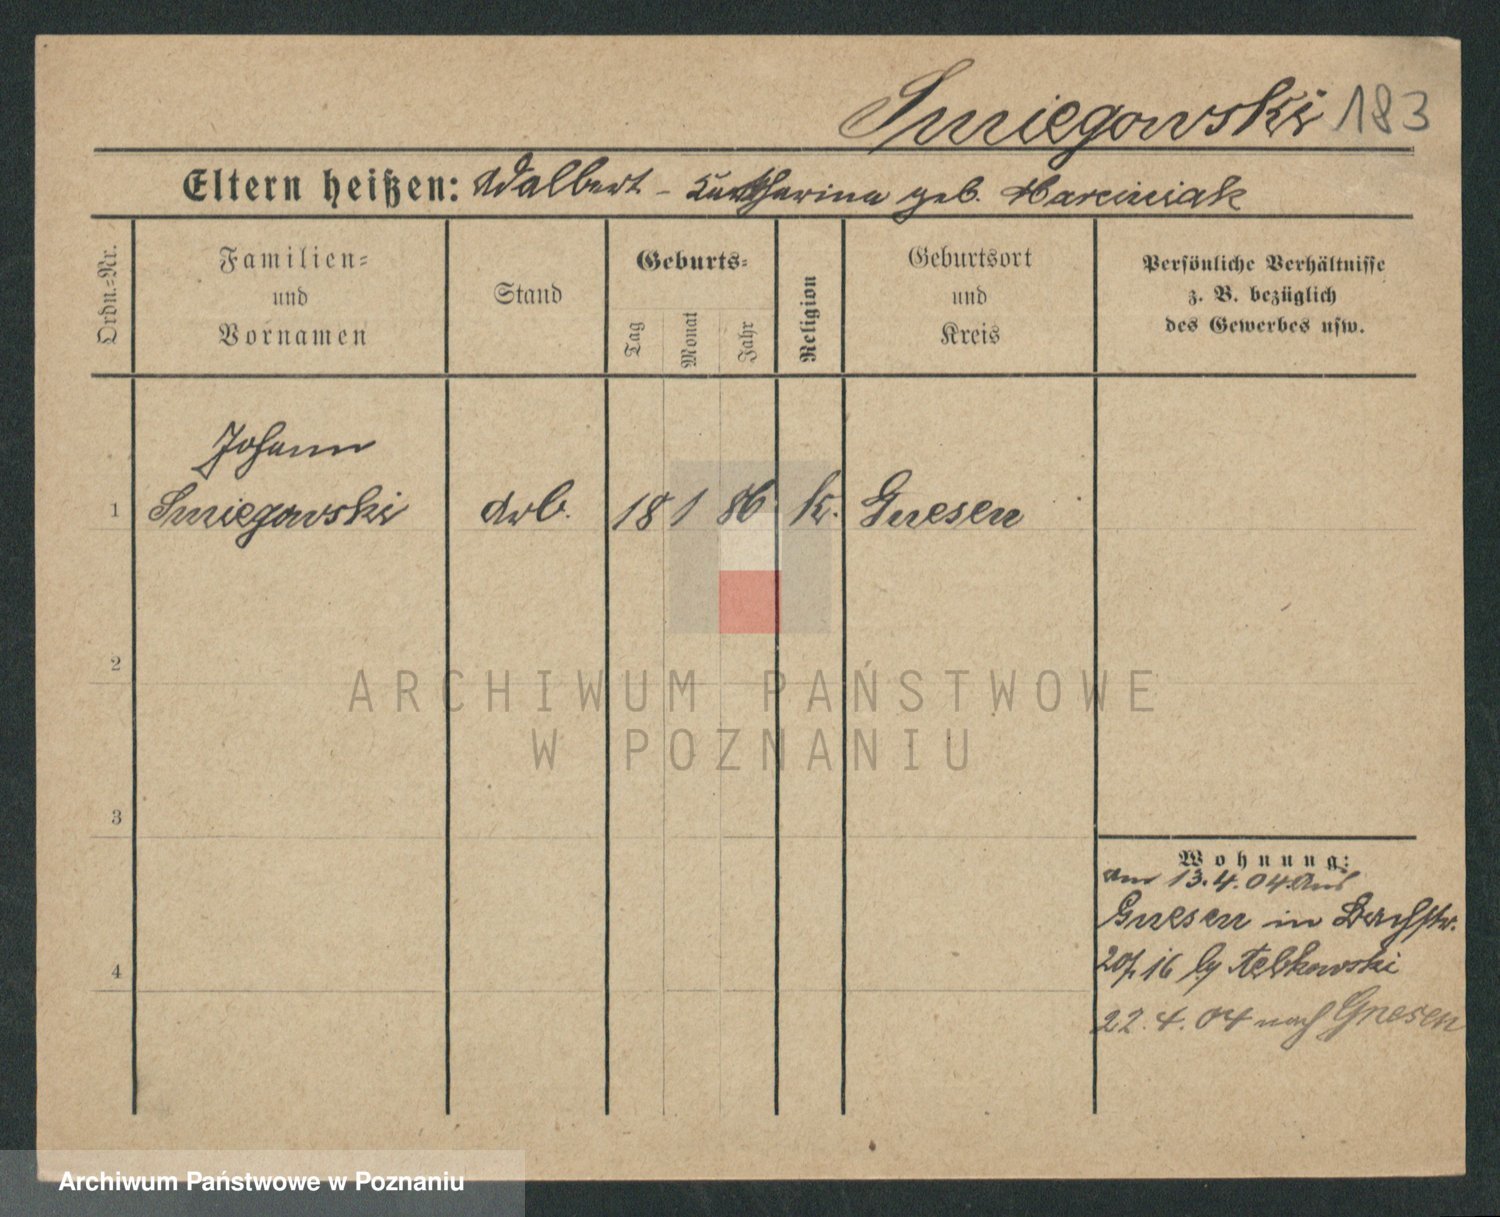 Smiegowski 183
Eltern heißen: Adalbert - Katharina geb. Marciniak
Ordn.=Nr.
Familien=
und
Vornamen
Stand
Geburts=
Tag
Monat
Jahr
Religion
Geburtsort
und
Kreis
Persönliche Verhältnisse
z. B. bezüglich
des Gewerbes usw.
Johann
1 Smiegowski Arb. 18 1 86 k. Gnesen
2
3
4
Wohnung:
am 13.4.04 aus
Gnesen in
16
22.4.04 nach Gnesen
ARCHIWUM PAŃSTWOWE
W POZNANIU
Archiwum Państwowe w Poznaniu